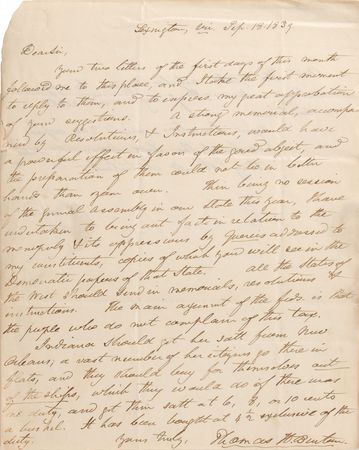 Lexington, Via. Sep. 18. 1839
Dear Sir,
Your two letters of the first days of this month
followed me to this place, and I take the first moment
to reply to them, and to express my great approbation
of your suggestions. A strong memorial, accompa
nied by Resolutions, & Instructions, would have
a powerful effect in favor of the good object, and
the preparation of them could not be in better
hands than your own. There being no session
of the general assembly in our State this year, I have
undertaken to bring out fact in relation to the
monopoly & its oppressions by Queries addressed to
my constituents, copies of which you will see in the
Democratic papers of that State. All the States of
the West should send in memorials, resolutions &
instructions. The main argument of the feds. is that
the people who do not complain of this tax.
Indiana should get her salt from New
Orleans; a vast number of her citizens go there in
flats, and they should buy for themselves out
of the ships, which they would do if there was
no duty, and get them salt at 6, 8, or 10 cents
a bushel. It has been bought at 4½ exclusive of the
duty. Yours truly, Thomas H. Benton.